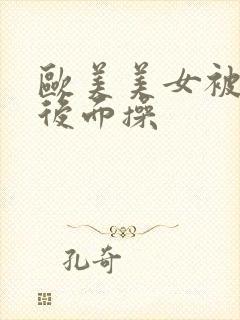 歐美美女被
後而操
孔奇